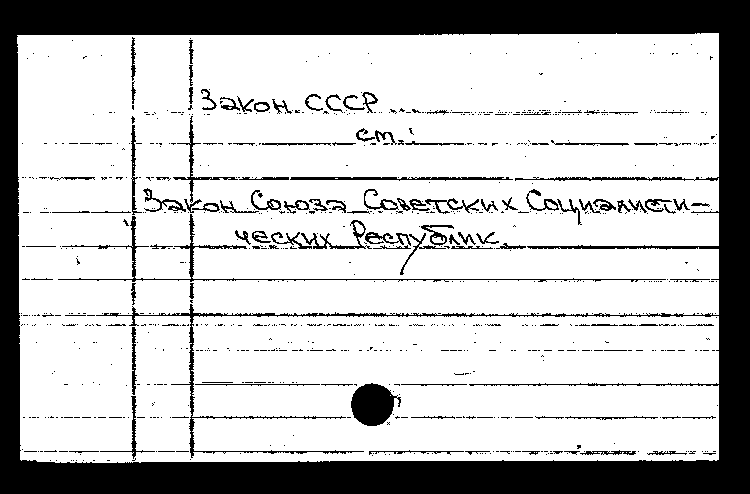 Закон СССР ...
см.:
Закон Союза Советских Социалисти-
ческих Республик.